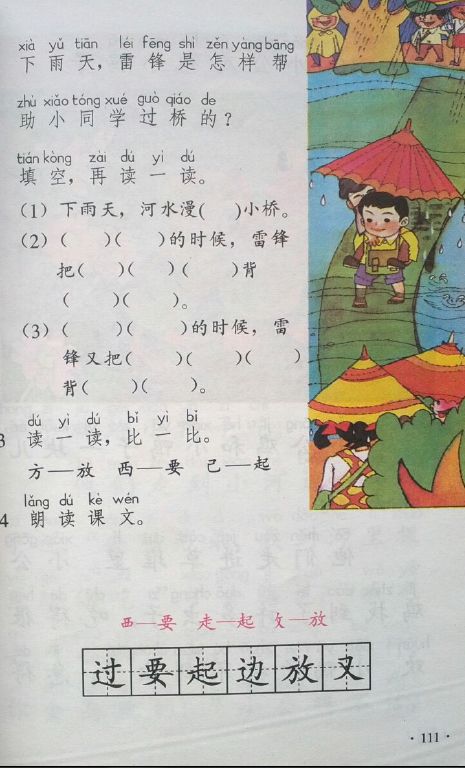 xià yǔ tiān léi fēng shì zěn yàng bāng
下雨天，雷锋是怎样帮
zhù xiǎo tóng xué guò qiáo de
助小同学过桥的？
tián kòng zài dú yi dú
填空，再读一读。
(1) 下雨天，河水漫( )小桥。
(2) ( )( )的时候，雷锋
把( )( )( )背
( )( )。
(3) ( )( )的时候，雷
锋又把( )( )( )
背( )( )。
dú yi dú bǐ yi bǐ
3 读一读，比一比。
方—放 西—要 己—起
lǎng dú kè wén
4 朗读课文。
西—要 走—起 攵—放
过要起边放又
·111·